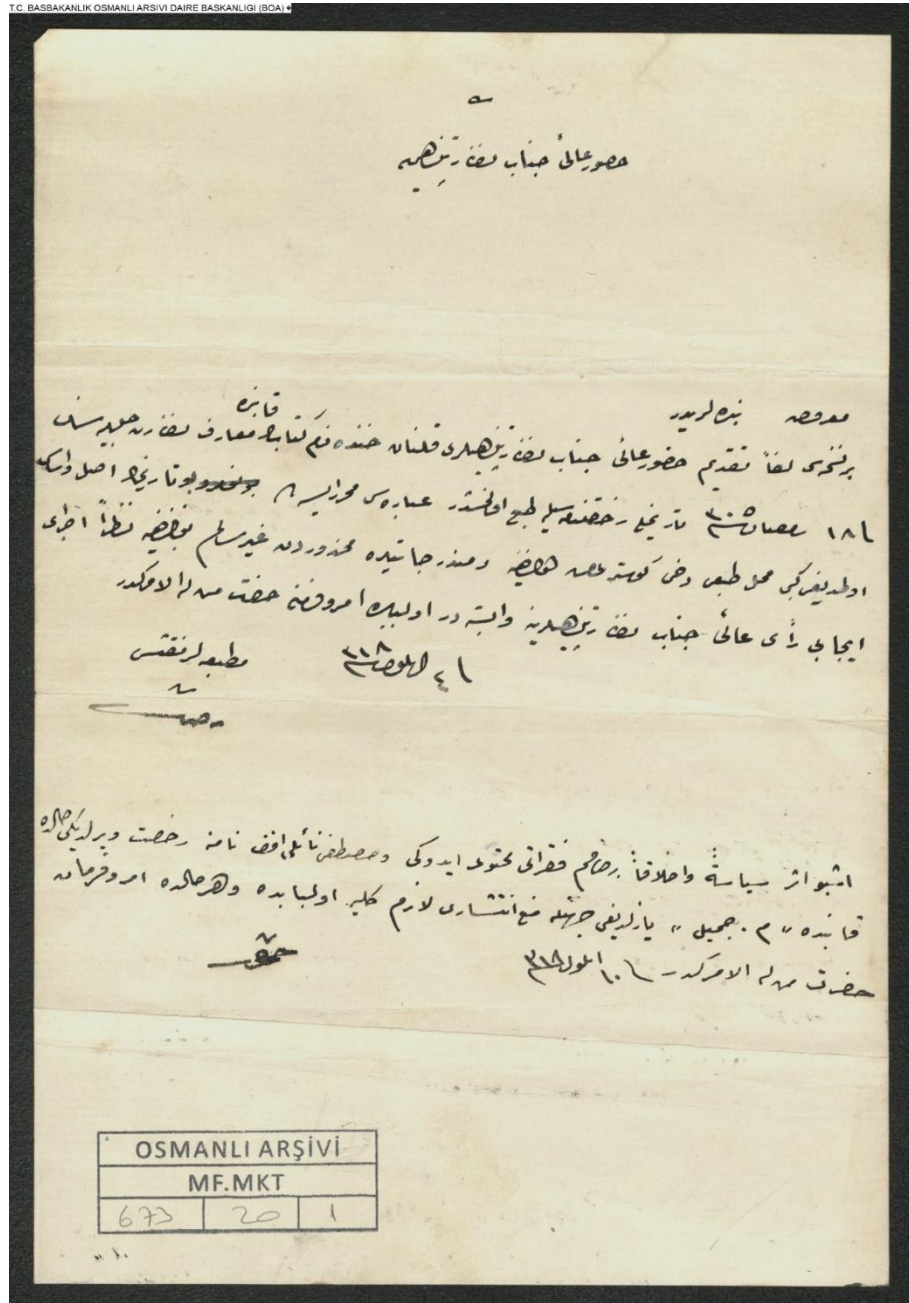 T.C. BASBAKANLIK OSMANLI ARSIVI DAIRE BASKANLIGI (BOA)
حضور عالئ جناب نظارتپناهیه
معروض بنده لریدر
برنسخه‌سی لفاً تقدیم حضور عالئ جناب نظارتپناهیلری قلنان خنده نام کتابك قابنده معارف نظارت جلیله‌سنك
١٨ تاریخلی رخصتنامه‌سیله طبع اولنمشدر عباره‌سی محرر ایسه ده بو تاریخك اصل و اساسی
اولمدیغی کبی محل طبعی دخی کوسترلمامش و مندرجاتیده محذوردن غیر سالم نظراً اجرای
ایجابی رأی عالئ جناب نظارتپناهیلرینه وابسته در اولبابده امر و فرمان حضرت من له الامرکدر
٤ ایلول ٣١٨
مطبعه‌لر مفتشی
اشبو اثر سیاسةً و اخلاقاً مضر فقراتی محتوی ایدوکی و مصطفی نائلی افندی نامنه رخصت ویرلدیکی حالده
قابنده «م. جمیل» یازلدیغی جهتله منع انتشاری لازم کلیر اولبابده و هر حالده امر و فرمان
حضرت من له الامرکدر ١٠ ایلول ٣١٨
OSMANLI ARŞİVİ
MF.MKT
673 20 1